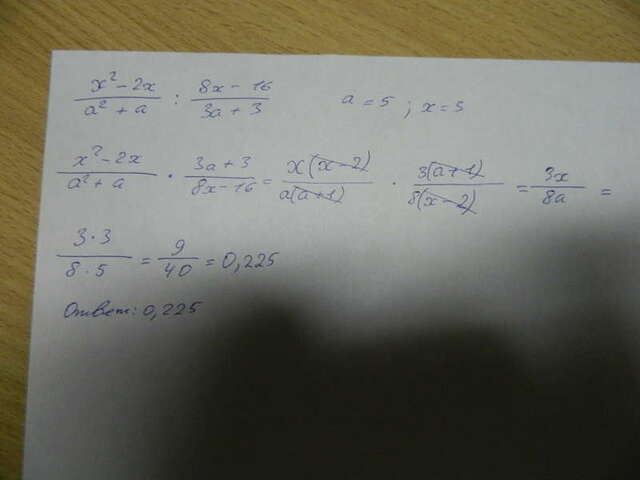 x² - 2x / a² + a : 8x - 16 / 3a + 3 a = 5 ; x = 3
x² - 2x / a² + a · 3a + 3 / 8x - 16 = x(x - 2) / a(a + 1) · 3(a + 1) / 8(x - 2) = 3x / 8a =
3 · 3 / 8 · 5 = 9 / 40 = 0,225
Ответ: 0,225